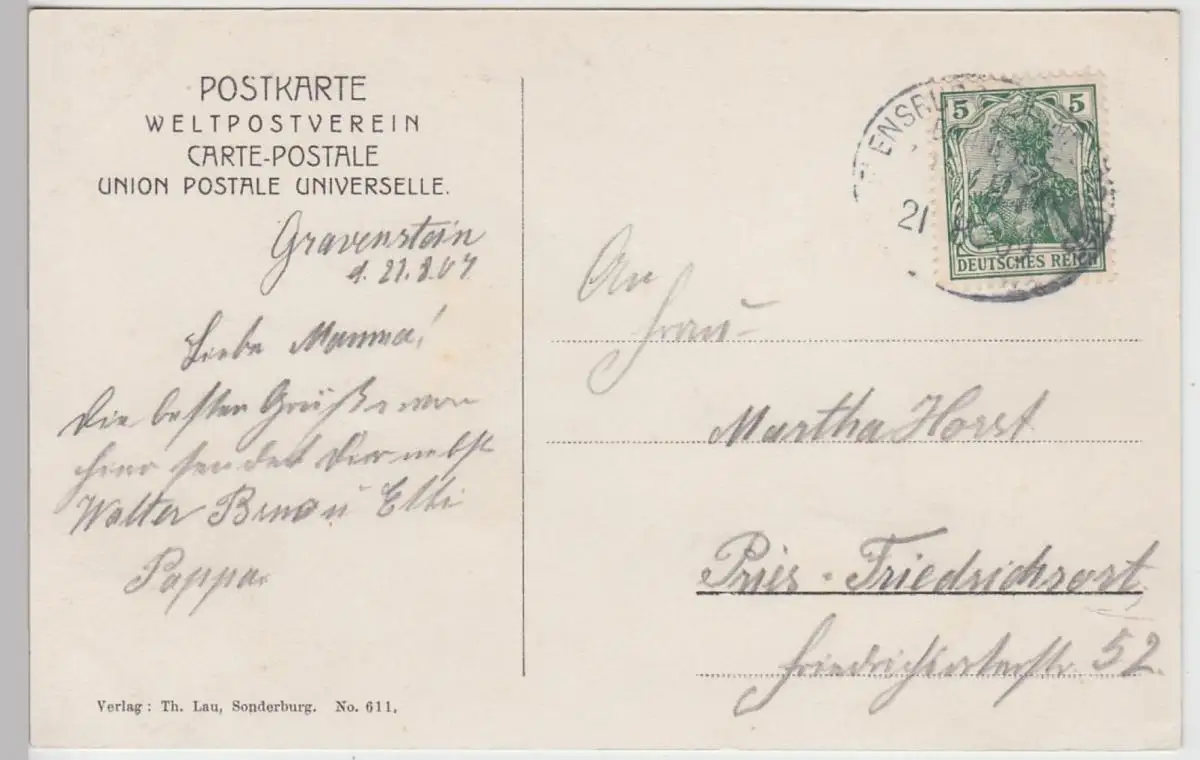 POSTKARTE
WELTPOSTVEREIN
CARTE-POSTALE
UNION POSTALE UNIVERSELLE.
Gravenstein
d. 21.8.07
Liebe Mamma!
Die besten Grüße von
hier sendet Dir nebst
Walter Bruno u Elli
Pappa
Verlag: Th. Lau, Sonderburg. No. 611,
5 5
DEUTSCHES REICH
21
An
Frau
Martha Horst
Pries - Friedrichsort
Friedrichsorterstr. 52